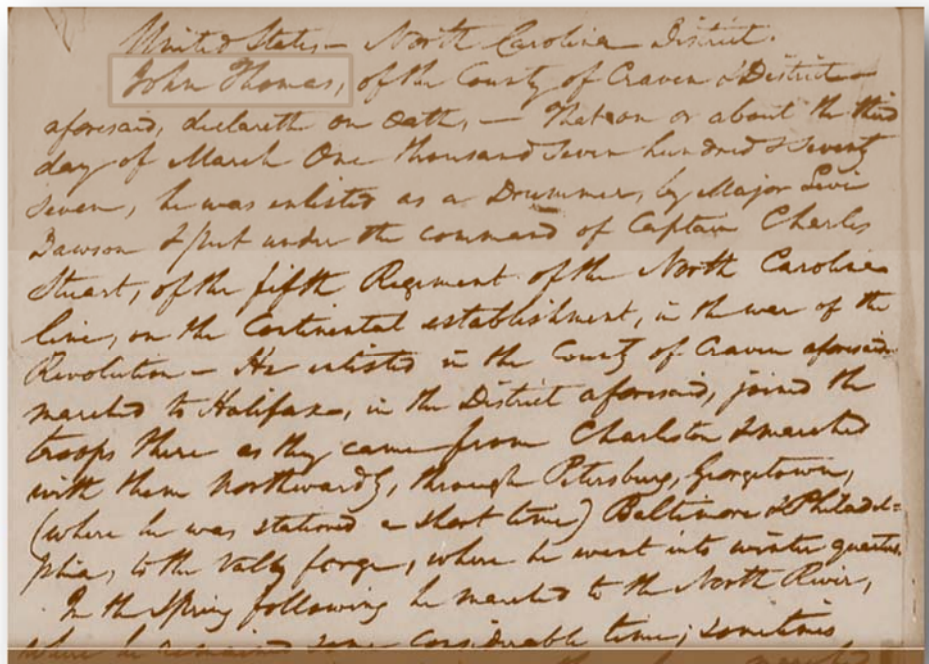 United States – North Carolina District.
John Thomas, of the County of Craven & District
aforesaid, declareth on Oath, – That on or about the third
day of March One thousand Seven hundred & Seventy
Seven, he was enlisted as a Drummer, by Major Levi
Dawson & put under the command of Captain Charles
Stuart, of the fifth Regiment of the North Carolina
line, on the Continental establishment, in the war of the
Revolution – He enlisted in the County of Craven aforesaid
marched to Halifax, in the District aforesaid, joined the
troops there as they came from Charleston & marched
with them Northwardly, through Petersburg, Georgetown,
(where he was stationed a short time) Baltimore & Philadel=
phia, to the Vally forge, where he went into winter quarters.
In the Spring following he marched to the North River,
where he remained some considerable time; sometimes